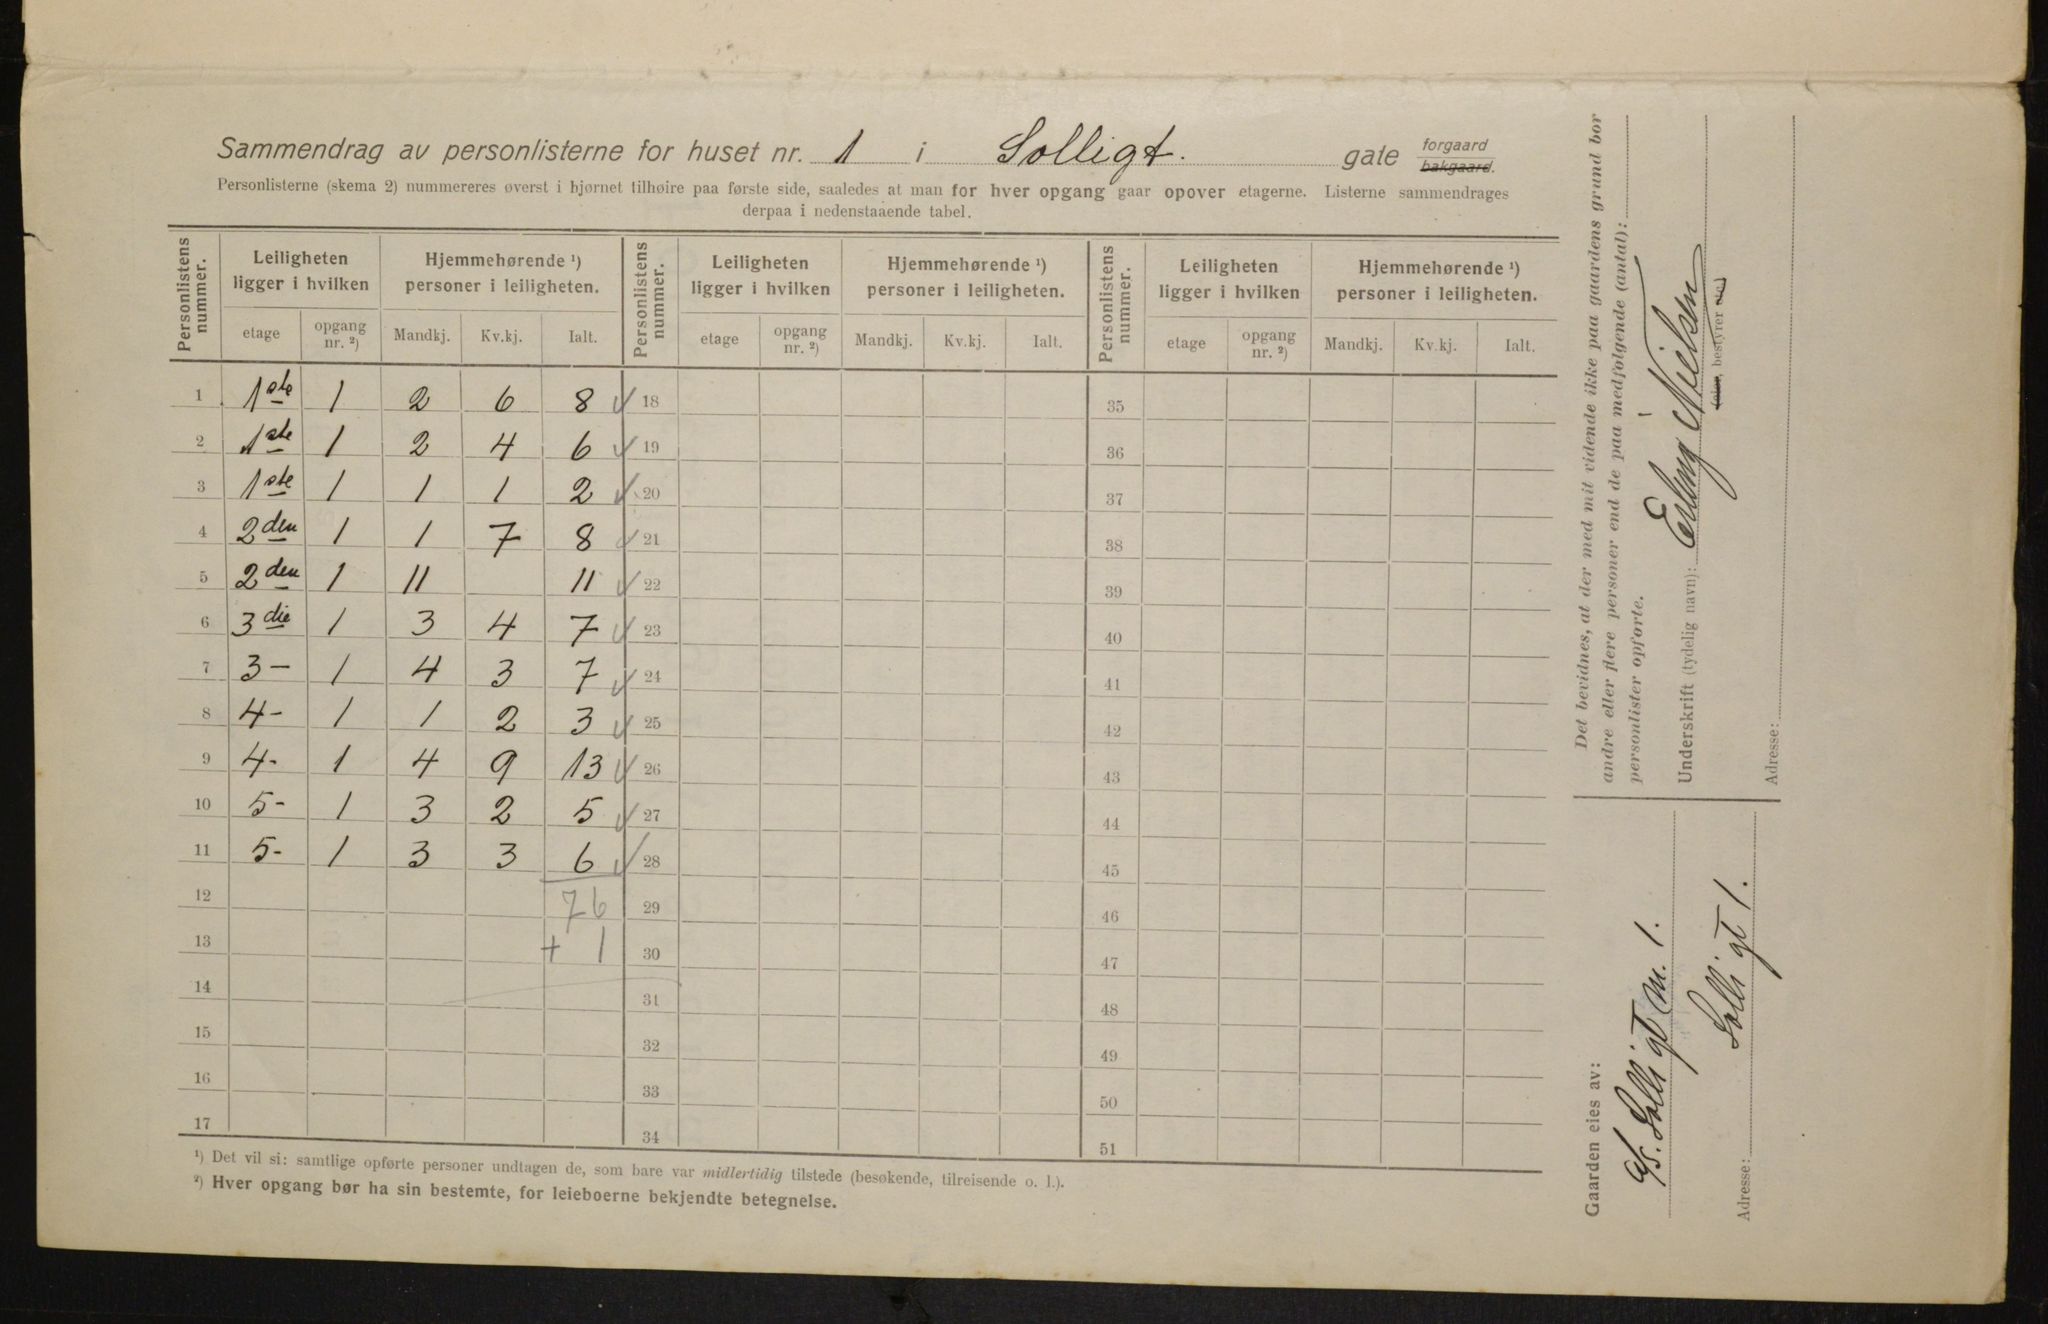 Sammendrag av personlisterne for huset nr. 1 i Solligt. gate forgaard bakgaard.
Personlisterne (skema 2) nummereres øverst i hjørnet tilhøire paa første side, saaledes at man for hver opgang gaar opover etagerne. Listerne sammendrages
derpaa i nedenstaaende tabel.
Personlistens nummer. Leiligheten ligger i hvilken Hjemmehørende ¹) personer i leiligheten. Personlistens nummer. Leiligheten ligger i hvilken Hjemmehørende ¹) personer i leiligheten. Personlistens nummer. Leiligheten ligger i hvilken Hjemmehørende ¹) personer i leiligheten.
etage opgang nr. ²) Mandkj. Kv.kj. Ialt. etage opgang nr. ²) Mandkj. Kv.kj. Ialt. etage opgang nr. ²) Mandkj. Kv.kj. Ialt.
1 1ste 1 2 6 8 18 35
2 1ste 1 2 4 6 19 36
3 1ste 1 1 1 2 20 37
4 2den 1 1 7 8 21 38
5 2den 1 11 11 22 39
6 3die 1 3 4 7 23 40
7 3- 1 4 3 7 24 41
8 4- 1 1 2 3 25 42
9 4- 1 4 9 13 26 43
10 5- 1 3 2 5 27 44
11 5- 1 3 3 6 28 45
12 76 29 46
13 + 1 30 47
14 31 48
15 32 49
16 33 50
17 34 51
¹) Det vil si: samtlige opførte personer undtagen de, som bare var midlertidig tilstede (besøkende, tilreisende o. l.).
²) Hver opgang bør ha sin bestemte, for leieboerne bekjendte betegnelse.
Det bevidnes, at der med mit vidende ikke paa gaardens grund bor
andre eller flere personer end de paa medfølgende (antal):
personlister opførte.
Underskrift (tydelig navn): Erling Nielsen
(eier, bestyrer etc.)
Adresse:
Gaarden eies av:
A/S. Solli gt No. 1.
Adresse: Solli gt 1.